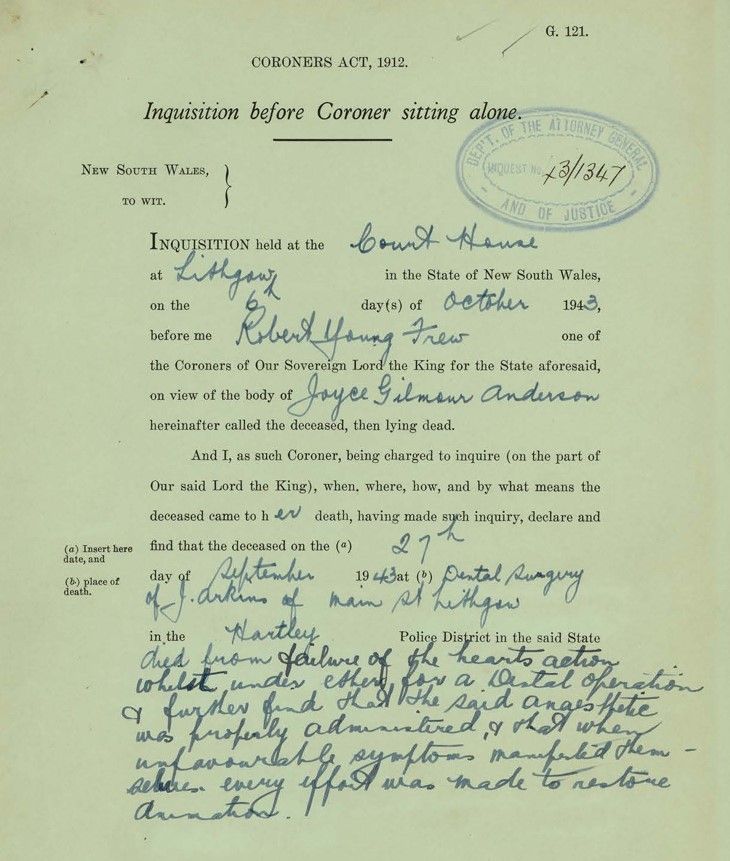 G. 121.
CORONERS ACT, 1912.
Inquisition before Coroner sitting alone.
DEP'T. OF THE ATTORNEY GENERAL
INQUEST No. 43/1347
AND OF JUSTICE
NEW SOUTH WALES,
TO WIT.
INQUISITION held at the Court House
at Lithgow in the State of New South Wales,
on the 6th day(s) of October 1943,
before me Robert Young Frew one of
the Coroners of Our Sovereign Lord the King for the State aforesaid,
on view of the body of Joyce Gilmour Anderson
hereinafter called the deceased, then lying dead.
And I, as such Coroner, being charged to inquire (on the part of
Our said Lord the King), when. where, how, and by what means the
deceased came to h er death, having made such inquiry, declare and
(a) Insert here
date, and
find that the deceased on the (a) 27th
(b.) place of
death.
day of September 1943 at (b) Dental Surgery
of J. Arkins of main st Lithgow
in the Hartley Police District in the said State
died from failure of the hearts action
whilst under ether for a Dental operation
& further find that the said anaesthetic
was properly administered, & that when
unfavourable symptoms manifested them -
selves. every effort was made to restore
animation.